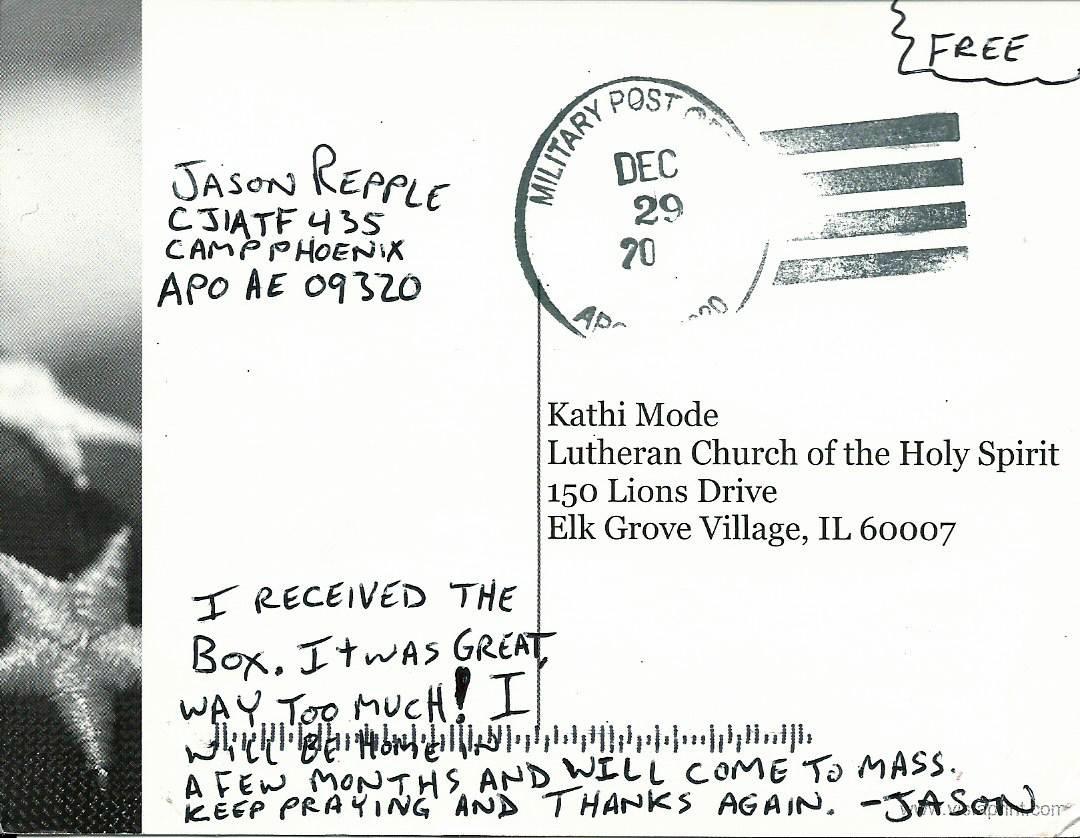 FREE
MILITARY POST
DEC
29
20
JASON REPPLE
CJIATF 435
CAMP PHOENIX
APO AE 09320
Kathi Mode
Lutheran Church of the Holy Spirit
150 Lions Drive
Elk Grove Village, IL 60007
I RECEIVED THE
BOX. It WAS GREAT,
WAY TOO MUCH! I
WILL BE HOME IN
A FEW MONTHS AND WILL COME TO MASS.
KEEP PRAYING AND THANKS AGAIN. -JASON
www.vistaprint.com